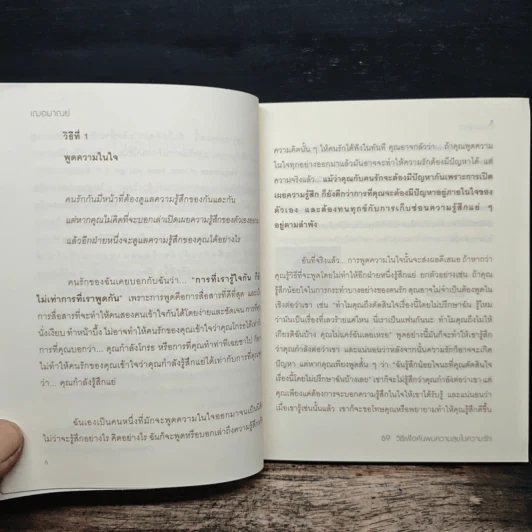 เฌอมาณย์
วิธีที่ 1
พูดความในใจ
คนรักกันมีหน้าที่ต้องดูแลความรู้สึกของกันและกัน
แต่หากคุณไม่คิดที่จะบอกเล่าเปิดเผยความรู้สึกของตัวเองออกมา
แล้วอีกฝ่ายหนึ่งจะดูแลความรู้สึกของคุณได้อย่างไร
คนรักของฉันเคยบอกกับฉันว่า... "การที่เรารู้ใจกัน ก็
ไม่เท่าการที่เราพูดกัน" เพราะการพูดคือการสื่อสารที่ดีที่สุด และ
การสื่อสารที่จะทำให้คนสองคนเข้าใจกันได้โดยง่ายและชัดเจน การที่
นั่งเงียบ ทำหน้าบึ้ง ไม่อาจทำให้คนรักของคุณเข้าใจว่าคุณโกรธได้เท่า
ที่คุณบอกว่า... คุณกำลังโกรธ หรือการที่คุณทำท่าทีเฉยชาไป ก็
ไม่ทำให้คนรักของคุณเข้าใจว่าคุณกำลังรู้สึกแย่ได้เท่ากับการที่คุณพูด
ว่า... คุณกำลังรู้สึกแย่
ฉันเองเป็นคนหนึ่งที่มักจะพูดความในใจออกมาจนเป็นนิสัย
ไม่ว่าจะรู้สึกอย่างไร คิดอย่างไร ฉันก็จะพูดหรือบอกเล่าถึงความรู้สึก
6
ความคิดนั้น ๆ ให้คนรักได้ฟังในทันที คุณอาจกลัวว่า... ถ้าคุณพูดความ
ในใจทุกอย่างออกมาแล้วมันอาจจะทำให้ความรักต้องมีปัญหาได้ แต่
ความจริงแล้ว... แม้ว่าคุณกับคนรักจะต้องมีปัญหากันเพราะการเปิด
เผยความรู้สึก ก็ยังดีกว่าการที่คุณจะต้องมีปัญหาอยู่ภายในใจของ
ตัวเอง และต้องทนทุกข์กับการเก็บซ่อนความรู้สึกแย่ ๆ
อยู่ตามลำพัง
อันที่จริงแล้ว... การพูดความในใจนั้นจะส่งผลดีเสมอ ถ้าหากว่า
คุณรู้วิธีที่จะพูดโดยไม่ทำให้อีกฝ่ายหนึ่งรู้สึกแย่ ยกตัวอย่างเช่น ถ้าคุณ
รู้สึกน้อยใจในการกระทำบางอย่างของคนรัก คุณอาจไม่จำเป็นต้องพูดใน
เชิงต่อว่าเขา เช่น "ทำไมคุณถึงตัดสินใจเรื่องนี้โดยไม่ปรึกษาฉัน รู้ไหม
ว่ามันเป็นเรื่องที่เลวร้ายแค่ไหน นี่เราเป็นแฟนกันนะ ทำไมคุณถึงไม่ให้
เกียรติฉันบ้าง คุณไม่แคร์ฉันเลยเหรอ" พูดอย่างนี้มันก็จะทำให้เขารู้สึก
ว่าคุณกำลังต่อว่าเขา และแน่นอนว่าหลังจากนั้นความรักก็อาจจะเกิด
ปัญหา แต่หากคุณเพียงพูดสั้น ๆ ว่า "ฉันรู้สึกน้อยใจนะที่คุณตัดสินใจ
เรื่องนี้โดยไม่ปรึกษาฉันบ้างเลย" เขาก็จะไม่รู้สึกว่าคุณกำลังต่อว่าเขา แต่
คุณเพียงแค่ต้องการจะบอกความรู้สึกน้อยใจให้เขาได้รับรู้ และแน่นอนว่า
เมื่อเขารู้เช่นนั้นแล้ว เขาก็จะขอโทษคุณหรือพยายามทำให้คุณรู้สึกดีขึ้น
69 วิธีเพื่อค้นพบความสุขในความรัก